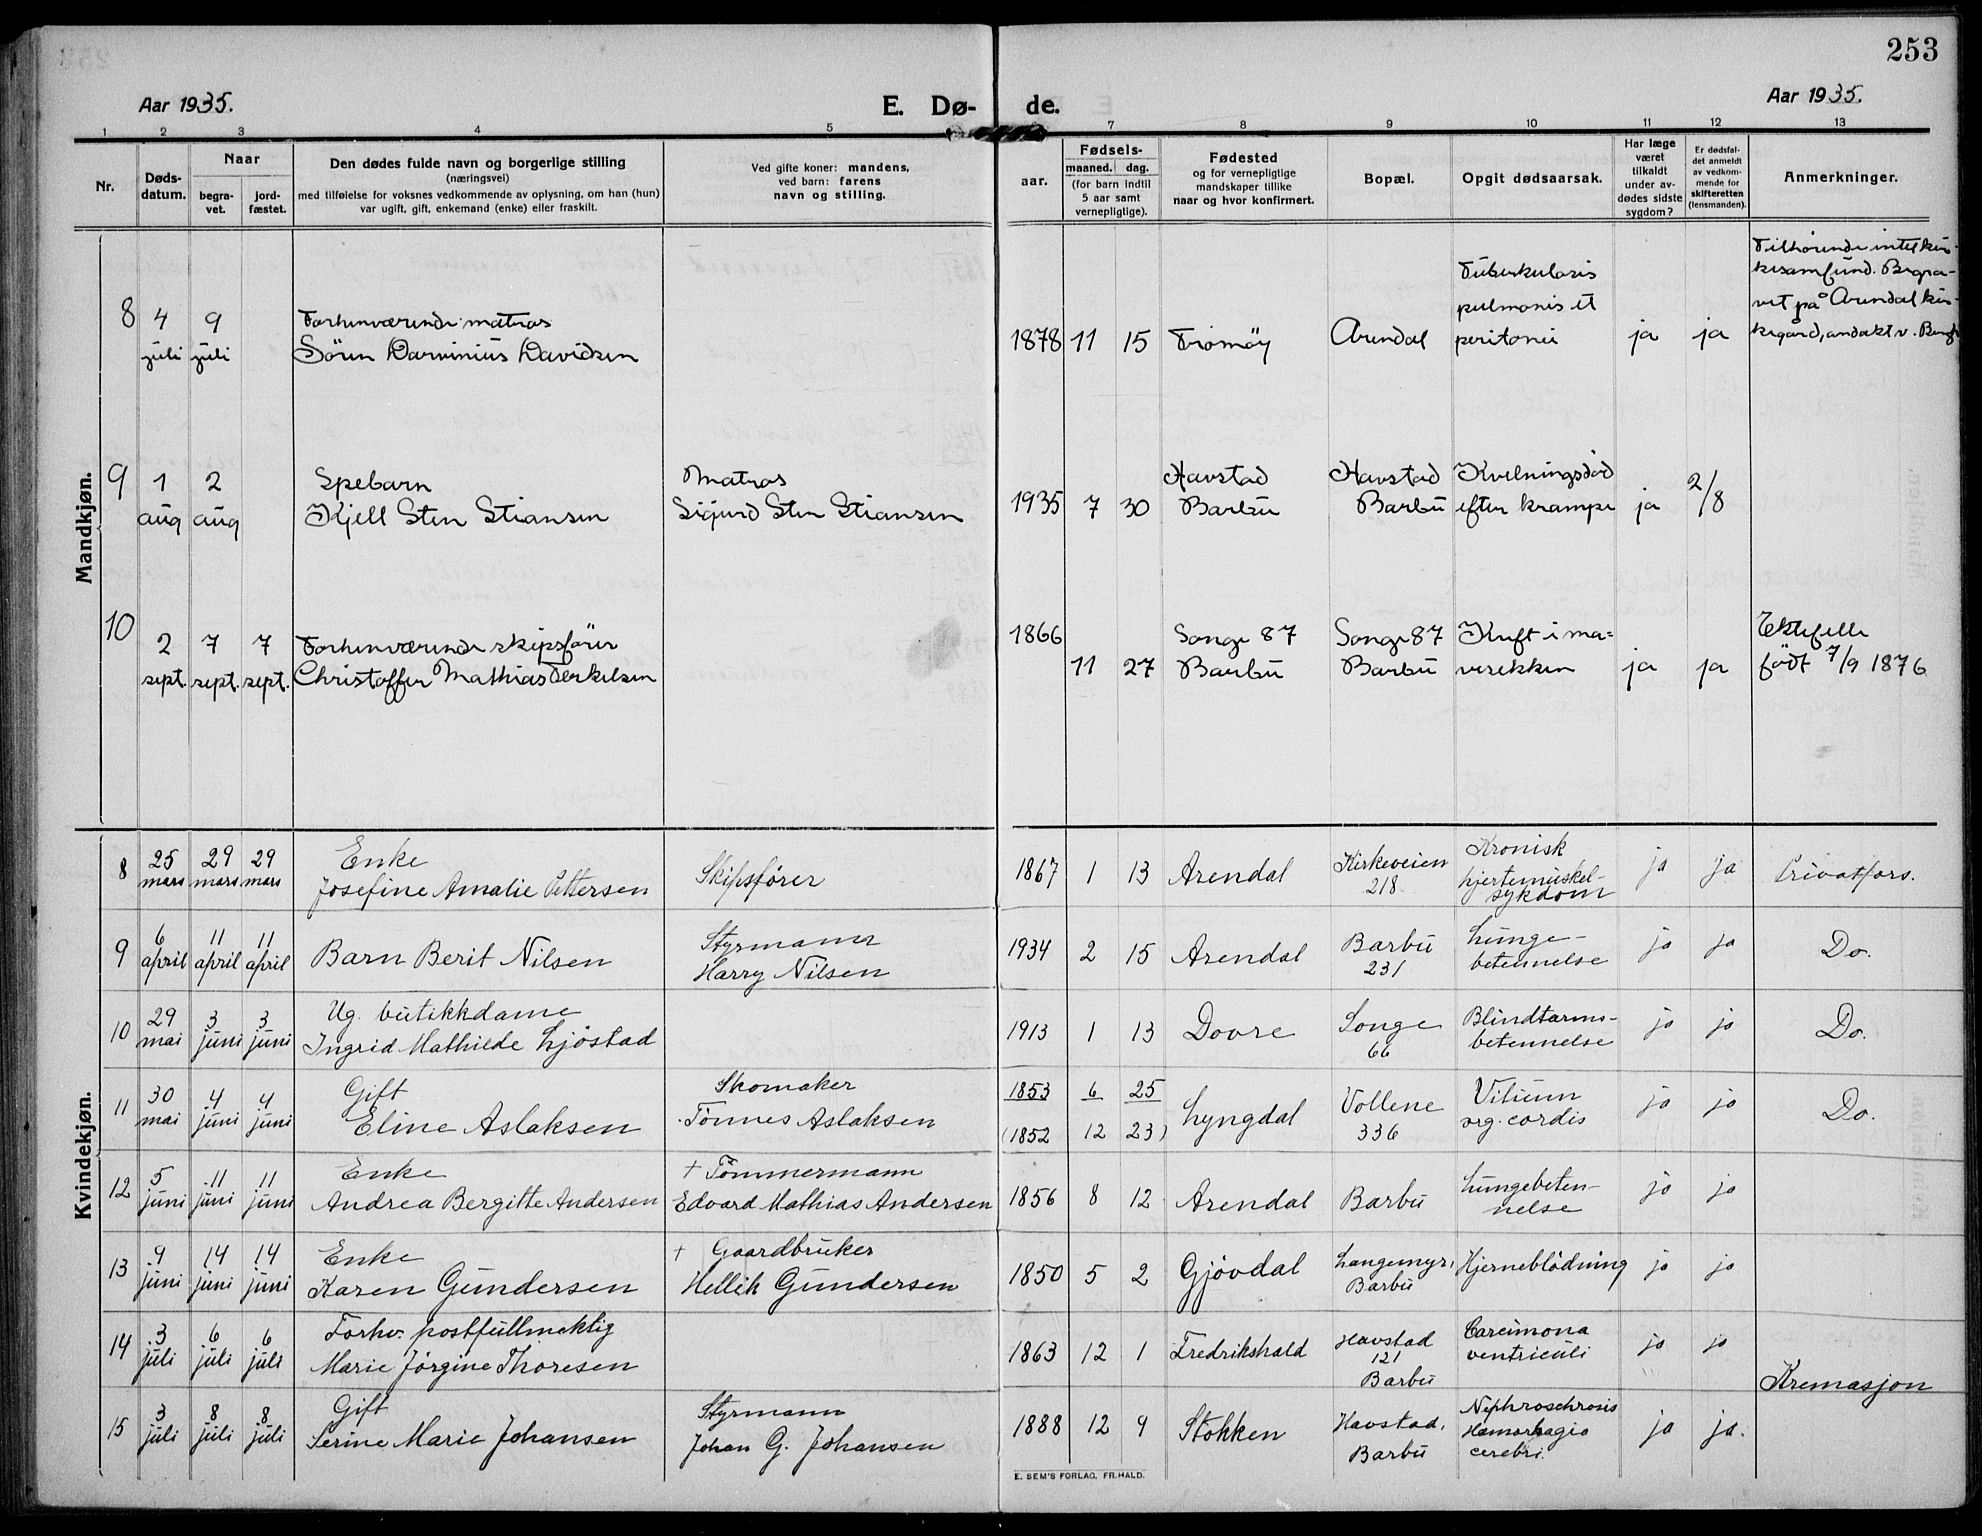 253
Aar 1935.
E. Dø-
de.
Aar 1935.
1 2 3 4 5 7 8 9 10 11 12 13
Nr.
Døds-
datum.
Naar
begra-
vet.
jord-
fæstet.
Den dødes fulde navn og borgerlige stilling
(næringsvei)
med tilføielse for voksnes vedkommende av oplysning, om han (hun)
var ugift, gift, enkemand (enke) eller fraskilt.
Ved gifte koner: mandens,
ved barn: farens
navn og stilling.
Fødsels-
aar.
maaned. dag.
(for barn indtil
5 aar samt
vernepligtige).
Fødested
og for vernepligtige
mandskaper tillike
naar og hvor konfirmert.
Bopæl.
Opgit dødsaarsak.
Har læge
været
tilkaldt
under av-
dødes sidste
sygdom?
Er dødsfal-
det anmeldt
av vedkom-
mende for
skifteretten
(lensmanden).
Anmerkninger.
Mandkjøn.
8
4
juli
9
juli
Forhenværende matros
Sören Darvinius Davidsen
1878 11 15
Tromöy
Arendal
Tuberkulosis
pulmonis et
peritonei
ja
ja
Tilhørende intet kir-
kesamfund. Begra-
vet på Arendal kir-
kegård, andakt v.
9
1
aug
2
aug
Spebarn
Kjell Sten Stiansen
Matros
Sigurd Sten Stiansen
1935 7 30
Havstad
Barbu
Havstad
Barbu
Kvelningsdöd
efter krampe
ja
2/8
10
2
sept.
7
sept.
7
sept.
Forhenværende skipsförer
Christoffer Mathias Terkelsen
1866
11 27
Songe 87
Barbu
Songe 87
Barbu
Kreft i ma=
vesekken
ja
ja
Ektefelle
født 7/9 1876
Kvindekjøn.
8
25
mars
29
mars
29
mars
Enke
Josefine Amalie Pettersen
Skipsfører
1867 1 13
Arendal
Kirkeveien
218.
Kronisk
hjertemuskel-
sykdom
ja
ja
Privatfors.
9
6
april
11
april
11
april
Barn Berit Nilsen
Styrmann
Harry Nilsen
1934 2 15
Arendal
Barbu
231
Lunge-
betennelse
ja
ja
Do.
10
29
mai
3
juni
3
juni
Ug. butikkdame
Ingrid Mathilde Ljöstad
1913 1 13
Dovre
Songe
66
Blindtarms-
betennelse
ja
ja
Do.
11
30
mai
4
juni
4
juni
Gift
Eline Aslaksen
Skomaker
Tönnes Aslaksen
1853 6 25
(1852 12 23)
Lyngdal
Vollene
336
Vitium
org. cordis
ja
ja
Do.
12
5
juni
11
juni
11
juni
Enke
Andrea Bergitte Andersen
+ Tömmermann
Edvard Mathias Andersen
1856 8 12
Arendal
Barbu
Lungebeten-
nelse
ja
ja
13
9
juni
14
juni
14
juni
Enke
Karen Gundersen
+ Gaardbruker
Hellik Gundersen
1850 5 2
Gjövdal
Langemyr,
Barbu
Hjerneblödning
ja
ja
14
3
juli
6
juli
6
juli
Forhv. postfullmektig
Marie Jörgine Thoresen
1863 12 1
Fredrikshald
Havstad
121
Barbu
Carcimona
ventriculi
ja
ja
15
3
juli
8
juli
8
juli
Gift
Serine Marie Johansen
Styrmann
Johan G. Johansen
1888 12 9
Stokken
Havstad,
Barbu
Hæmorhagia
cerebri.
ja
ja.
Kremasjon
E. SEM'S FORLAG, FR.HALD.